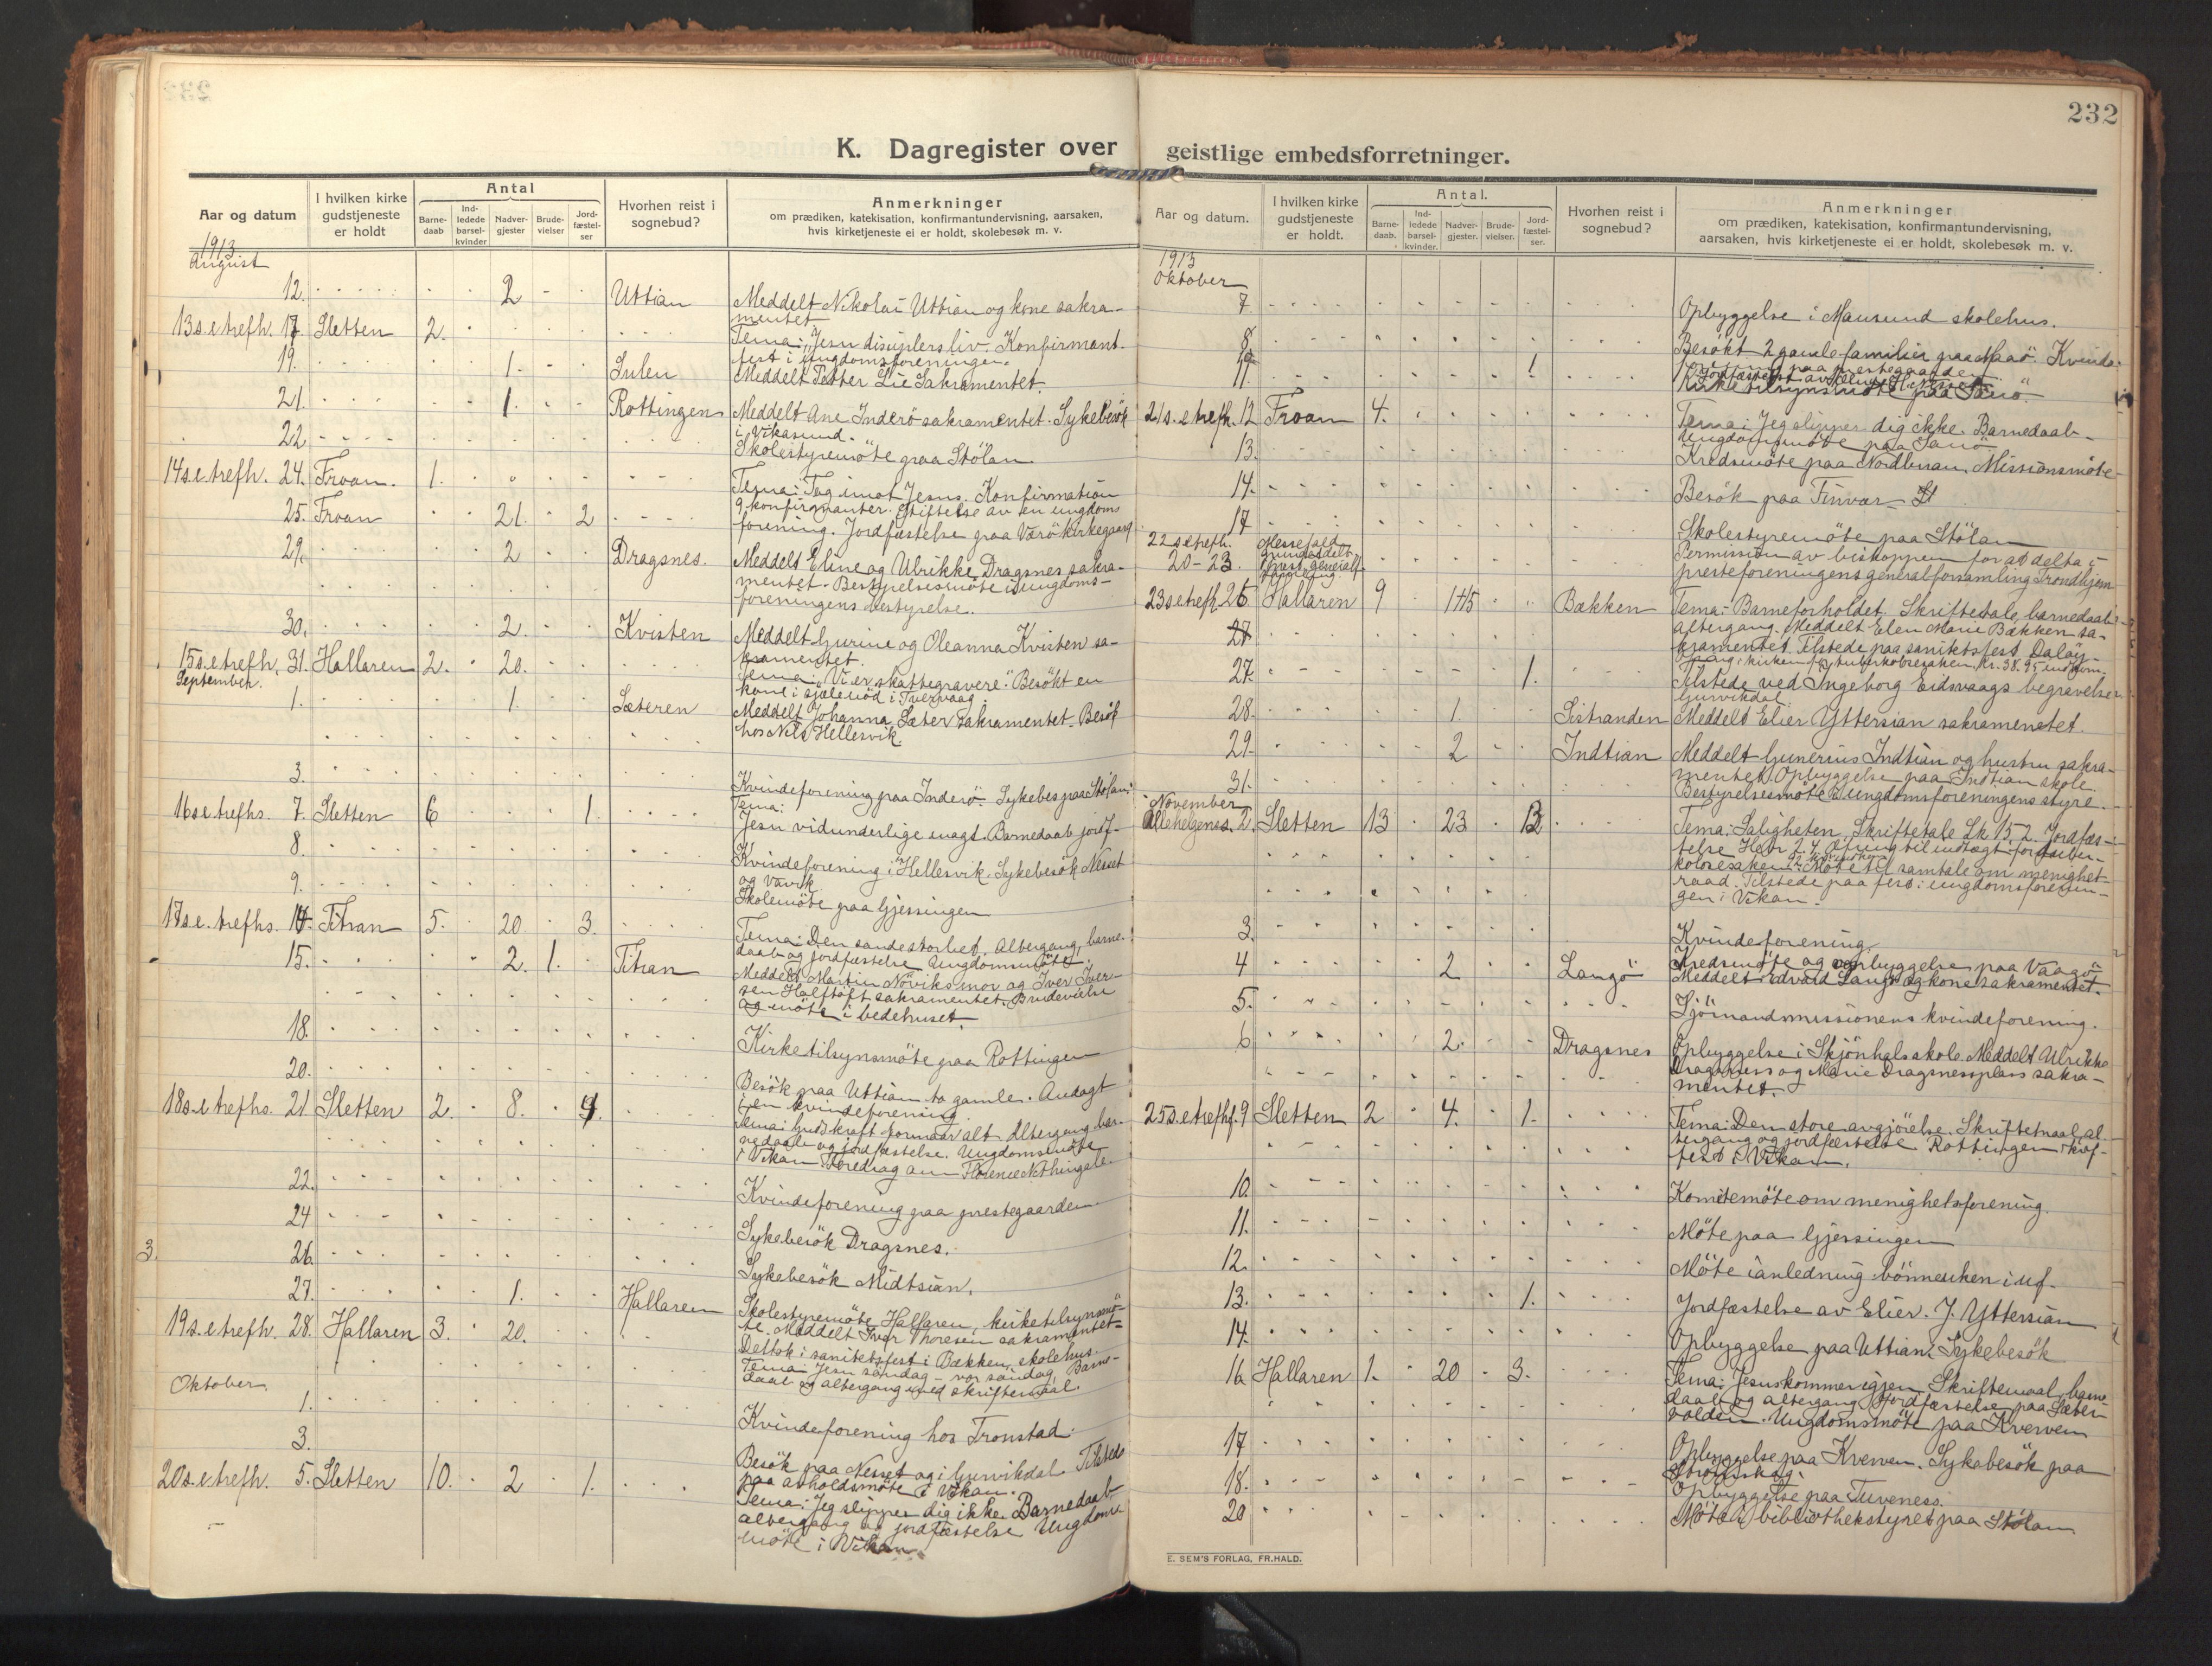 232
K. Dagregister over geistlige embedsforretninger.
Aar og datum
I hvilken kirke gudstjeneste er holdt
Antal
Barne-daab
Ind-ledede barsel-kvinder
Nadver-gjester
Brude-vielser
Jord-fæstel-ser
Hvorhen reist i sognebud?
Anmerkninger
om prædiken, katekisation, konfirmantundervisning, aarsaken,
hvis kirketjeneste ei er holdt, skolebesøk m. v.
1913
August
12. 2 Uttian Meddelt Nikolai Uttian og kone sakra-
mentet
13 s.e.trefh. 17 Sletten 2. Tema: "Jesu disciplers liv. Konfirmant-
fest i ungdomsforeningen.
19. 1. Sulen Meddelt Petter Lie Sakramentet.
21. 1. Rottingen Meddelt Ane Inderö sakramentet. Sykebesök
i Vikasund.
22 Skolestyremöte paa Stölan
14 s.e.trefh. 24. Froan. 1. Tema: Tag imot Jesus. Konfirmation
9 konfirmanter. Stiftelse av en ungdoms
25. Froan 21. 2 forening. Jordfæstelse paa Værö kirkegaard
29. 2 Dragsnes. Meddelt Eline og Ulrikke Dragsnes sakra-
mentet. Bestyrelsesmöte i ungdoms-
foreningens bestyrelse.
30. 2. Kvisten Meddelt Gurine og Oleanna Kvisten sa-
kramentet.
15 s.e.trefh. 31. Hallaren 2. 20. Tema: "Vi er skattegravere." Besökt en
kone i sjælenöd i Tvervaag
September.
1. 1. Sæteren Meddelt Johanna Sæter sakramentet. Besök
hos Nils Hellesvik.
3. Kvindeforening paa Inderö. Sykebes paa Stölan
16 s.e.trefhs. 7. Sletten 6 1. Tema:
Jesu vidunderlige magt. Barnedaab jordf-
8. Kvindeforening i Hellesvik. Sykebesök Nesset
og Vavik
9. Skolemöte paa Gjessingen
17 s.e.trefhs. 14. Titran 5. 20 3. Tema: Den sande storhet. Altergang, barne-
daab og jordfæstelse Ungdomsmöte.
15. 2. 1. Titran Meddelt Martin Növiks mor og Iver Iver-
sen Halftoft sakramentet. Brudevielse
og möte i bedehuset.
18. Kirketilsynsmöte paa Rottingen
20. Besök paa Uttian to gamle. Andagt
i en kvindeforening
18 s.e.trefhs. 21 Sletten 2. 8. Tema: Guds kraft formaar alt. Altergang bar-
nedaab og jordfæstelse. Ungdomsmöte
i Vikan. Foredrag om Florence Nithingale.
22. Kvindeforening paa prestegaarden
24 Sykebesök Dragsnes.
3. 26 Sykebesök Midtsian.
27. 1. Hallaren Skolestyremöte Hallaren, kirketilsynsmö-
te. Meddelt Iver Thoresen sakramentet.
19 s.e.trefh. 28. Hallaren 3. 20. Deltok i sanitetsfest i Bækken skolehus.
Tema: Jesu söndag – vor söndag. Barne-
daab og altergang med skriftemaal.
Oktober
1. Kvindeforening hos Fronstad.
3. Besök paa Nesset og i Gurvikdal. Tilstede
paa avholdsmöte i Vikan.
20 s.e.trefh. 5. Sletten 10. 2 1. Tema: Jeg slipper dig ikke. Barnedaab
altergang og jordfæstelse Ungdoms-
möte i Vikan.
Aar og datum.
I hvilken kirke gudstjeneste er holdt.
Antal.
Barne-daab.
Ind-ledede barsel-kvinder.
Nadver-gjester.
Brude-vielser.
Jord-fæstel-ser.
Hvorhen reist i sognebud?
Anmerkninger
om prædiken, katekisation, konfirmantundervisning,
aarsaken, hvis kirketjeneste ei er holdt, skolebesøk m. v.
1913
Oktober
7 Opbyggelse i Mausund skolehus.
8 Besökt 2 gamle familier paa Maaö. Kvinde-
forening paa prestegaarden
10
11. 1 Kirketilsynsmöte paa Sauö.
21 s.e.trefh. 12 Froan 4. Tema: Jeg slipper dig ikke. Barnedaab-
Ungdomsmöte paa Sauö
13. Kredsmöte paa Nordbuan. Missionsmöte
14. Besök paa Finvær
17 Skolestyremöte paa Stölan
22 s.e.trefh. 20-23. Messefald
Permission av biskoppen for at delta i
presteforeningens generalforsamling Trondhjem
23 s.e.trefh. 26 Hallaren 9 Bækken Tema: Barneforholdet. Skriftetale, barnedaab
altergang. Meddelt Elen Marie Bækken sa-
kramentet. Tilstede paa sanitetsfest Daløy
27 Ofring i kirken for tuberkolosesaken, kr. 38.95 indkom.
27. 1. Tilstede ved Ingeborg Eidsvaags begravelse
Gurvikdal
28. 1. Sistranden Meddelt Elier Yttersian sakramentet.
29. 2 Indtian Meddelt Gunerius Indtian og hustru sakra-
mentet. Opbyggelse paa Indtian skole.
31. Bestyrelsesmöte i ungdomsforeningens styre.
November
Allehelgens. 2. Sletten 13 23 Tema: Saligheten, Skriftetale Lk 15.2. Jordfæs-
telse Hebr 2.4. Ofring til indtægt for tuber-
kolosesaken. Möte til samtale om menighet-
raad. Tilstede paa fest i ungdomsforenin-
gen i Vikan.
3. Kvindeforening.
4 2 Langö Kredsmöte og opbyggelse paa Vaagö
Meddelt Edvard Langö og kone sakramentet.
5. Sjömandsmissionens kvindeforening.
6 2. Dragsnes Opbyggelse i Skjönhals skole. Meddelt Ulrikke
Dragsnes og Marie Dragsnesplass sakra-
mentet.
25 s.e.trefh. 9 Sletten 2 4. 1. Tema: Den store avgjörelse. Skriftemaal, al-
tergang og jordfæstelse. Rottingen
fest i Vikan.
10. Komitemöte om menighetsforening.
11. Möte paa Gjessingen
12. Möte i anledning bönneuken i uf.
13. 1. Jordfæstelse av Elier. J. Yttersian
14. Opbyggelse paa Uttian. Sykebesök
16 Hallaren 1. 20 3. Tema: Jesus kommer igjen. Skriftemaal, barne-
daab og altergang. Jordfæstelse paa Sæter-
volden. Ungdomsmöte paa Kverven
17 Opbyggelse paa Kverven. Sykebesök paa
Strömskag.
18. Opbyggelse paa Tuvenes.
20 Möte i bibliothekstyret paa Stölan
E. SEM'S FORLAG, FR.HALD.